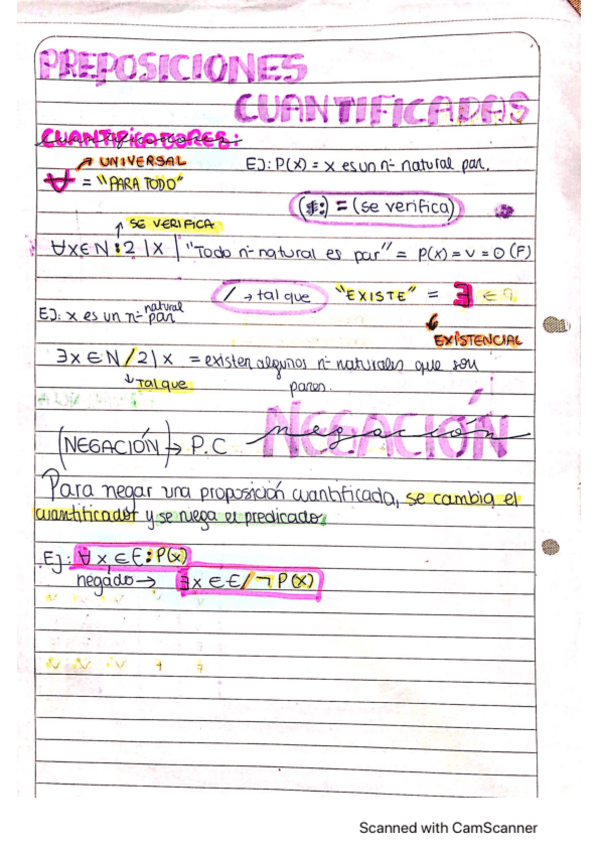 PREPOSICIONES
CUANTIFICADAS
CUANTIFICADORES:
UNIVERSAL
EJ: P(X) = X es un nº natural par.
∀ = "PARA TODO"
(:) = (se verifica)
↑ SE VERIFICA
∀x∈N:2|X | "Todo nº natural es par" = P(X) = V = O (F)
/ → tal que
"EXISTE" = ∃
EJ: x es un nº natural par
EXISTENCIAL
∃x∈N/2|x = existen algunos nº naturales que son
↓ Tal que
pares.
NEGACIÓN
negación
(NEGACIÓN) → P.C
Para negar una proposición cuantificada, se cambia el
cuantificador y se niega el predicado.
EJ: ∀x∈E:P(X)
negado → ∃x∈E/¬P(X)
Scanned with CamScanner